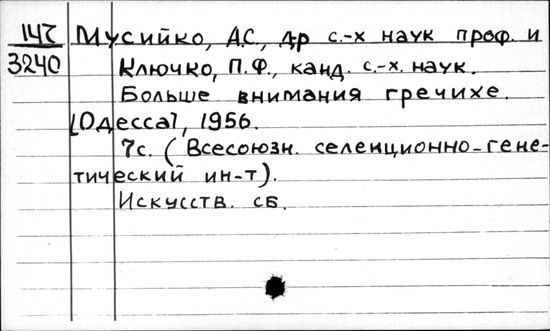 147 Мусийко, А.С., др с.-х наук проф. и
3240 Ключко, П.Ф., канд. с.-х. наук.
Больше внимания гречихе.
[Одесса], 1956.
7с. (Всесоюзн. селекционно-гене-
тический ин-т).
Искусств. сб.